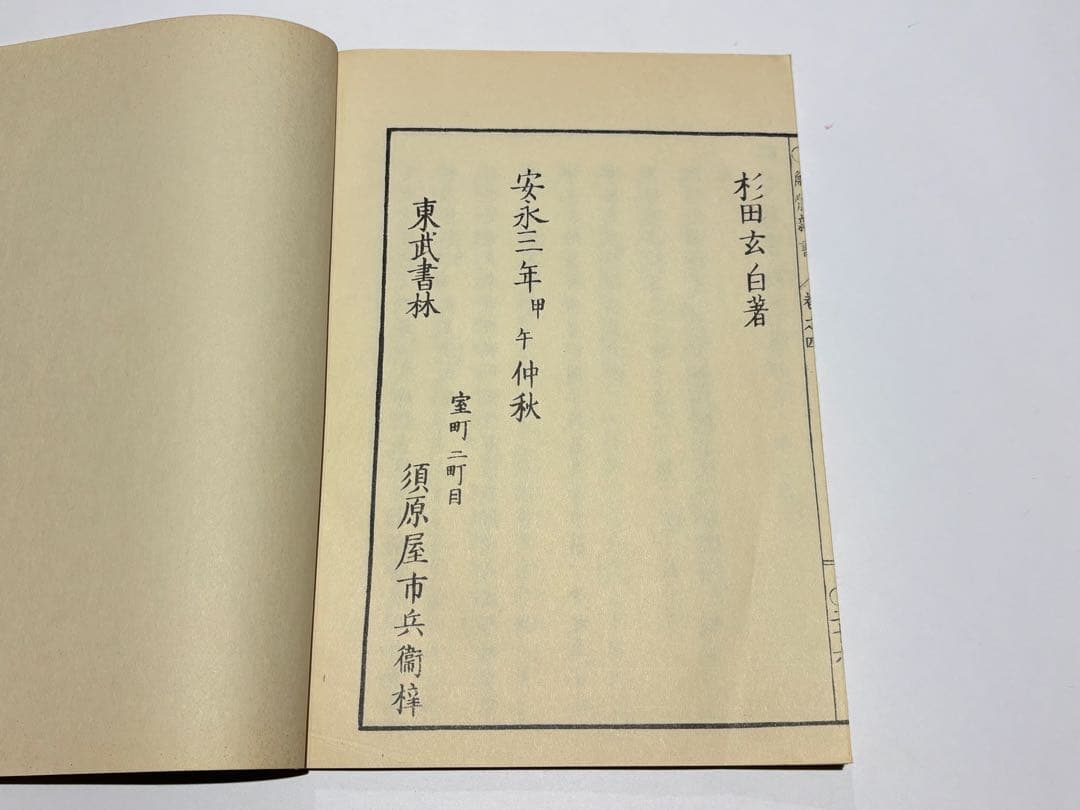 杉田玄白著
安永三年甲午仲秋
東武書林
室町二町目
須原屋市兵衞梓
卷之四